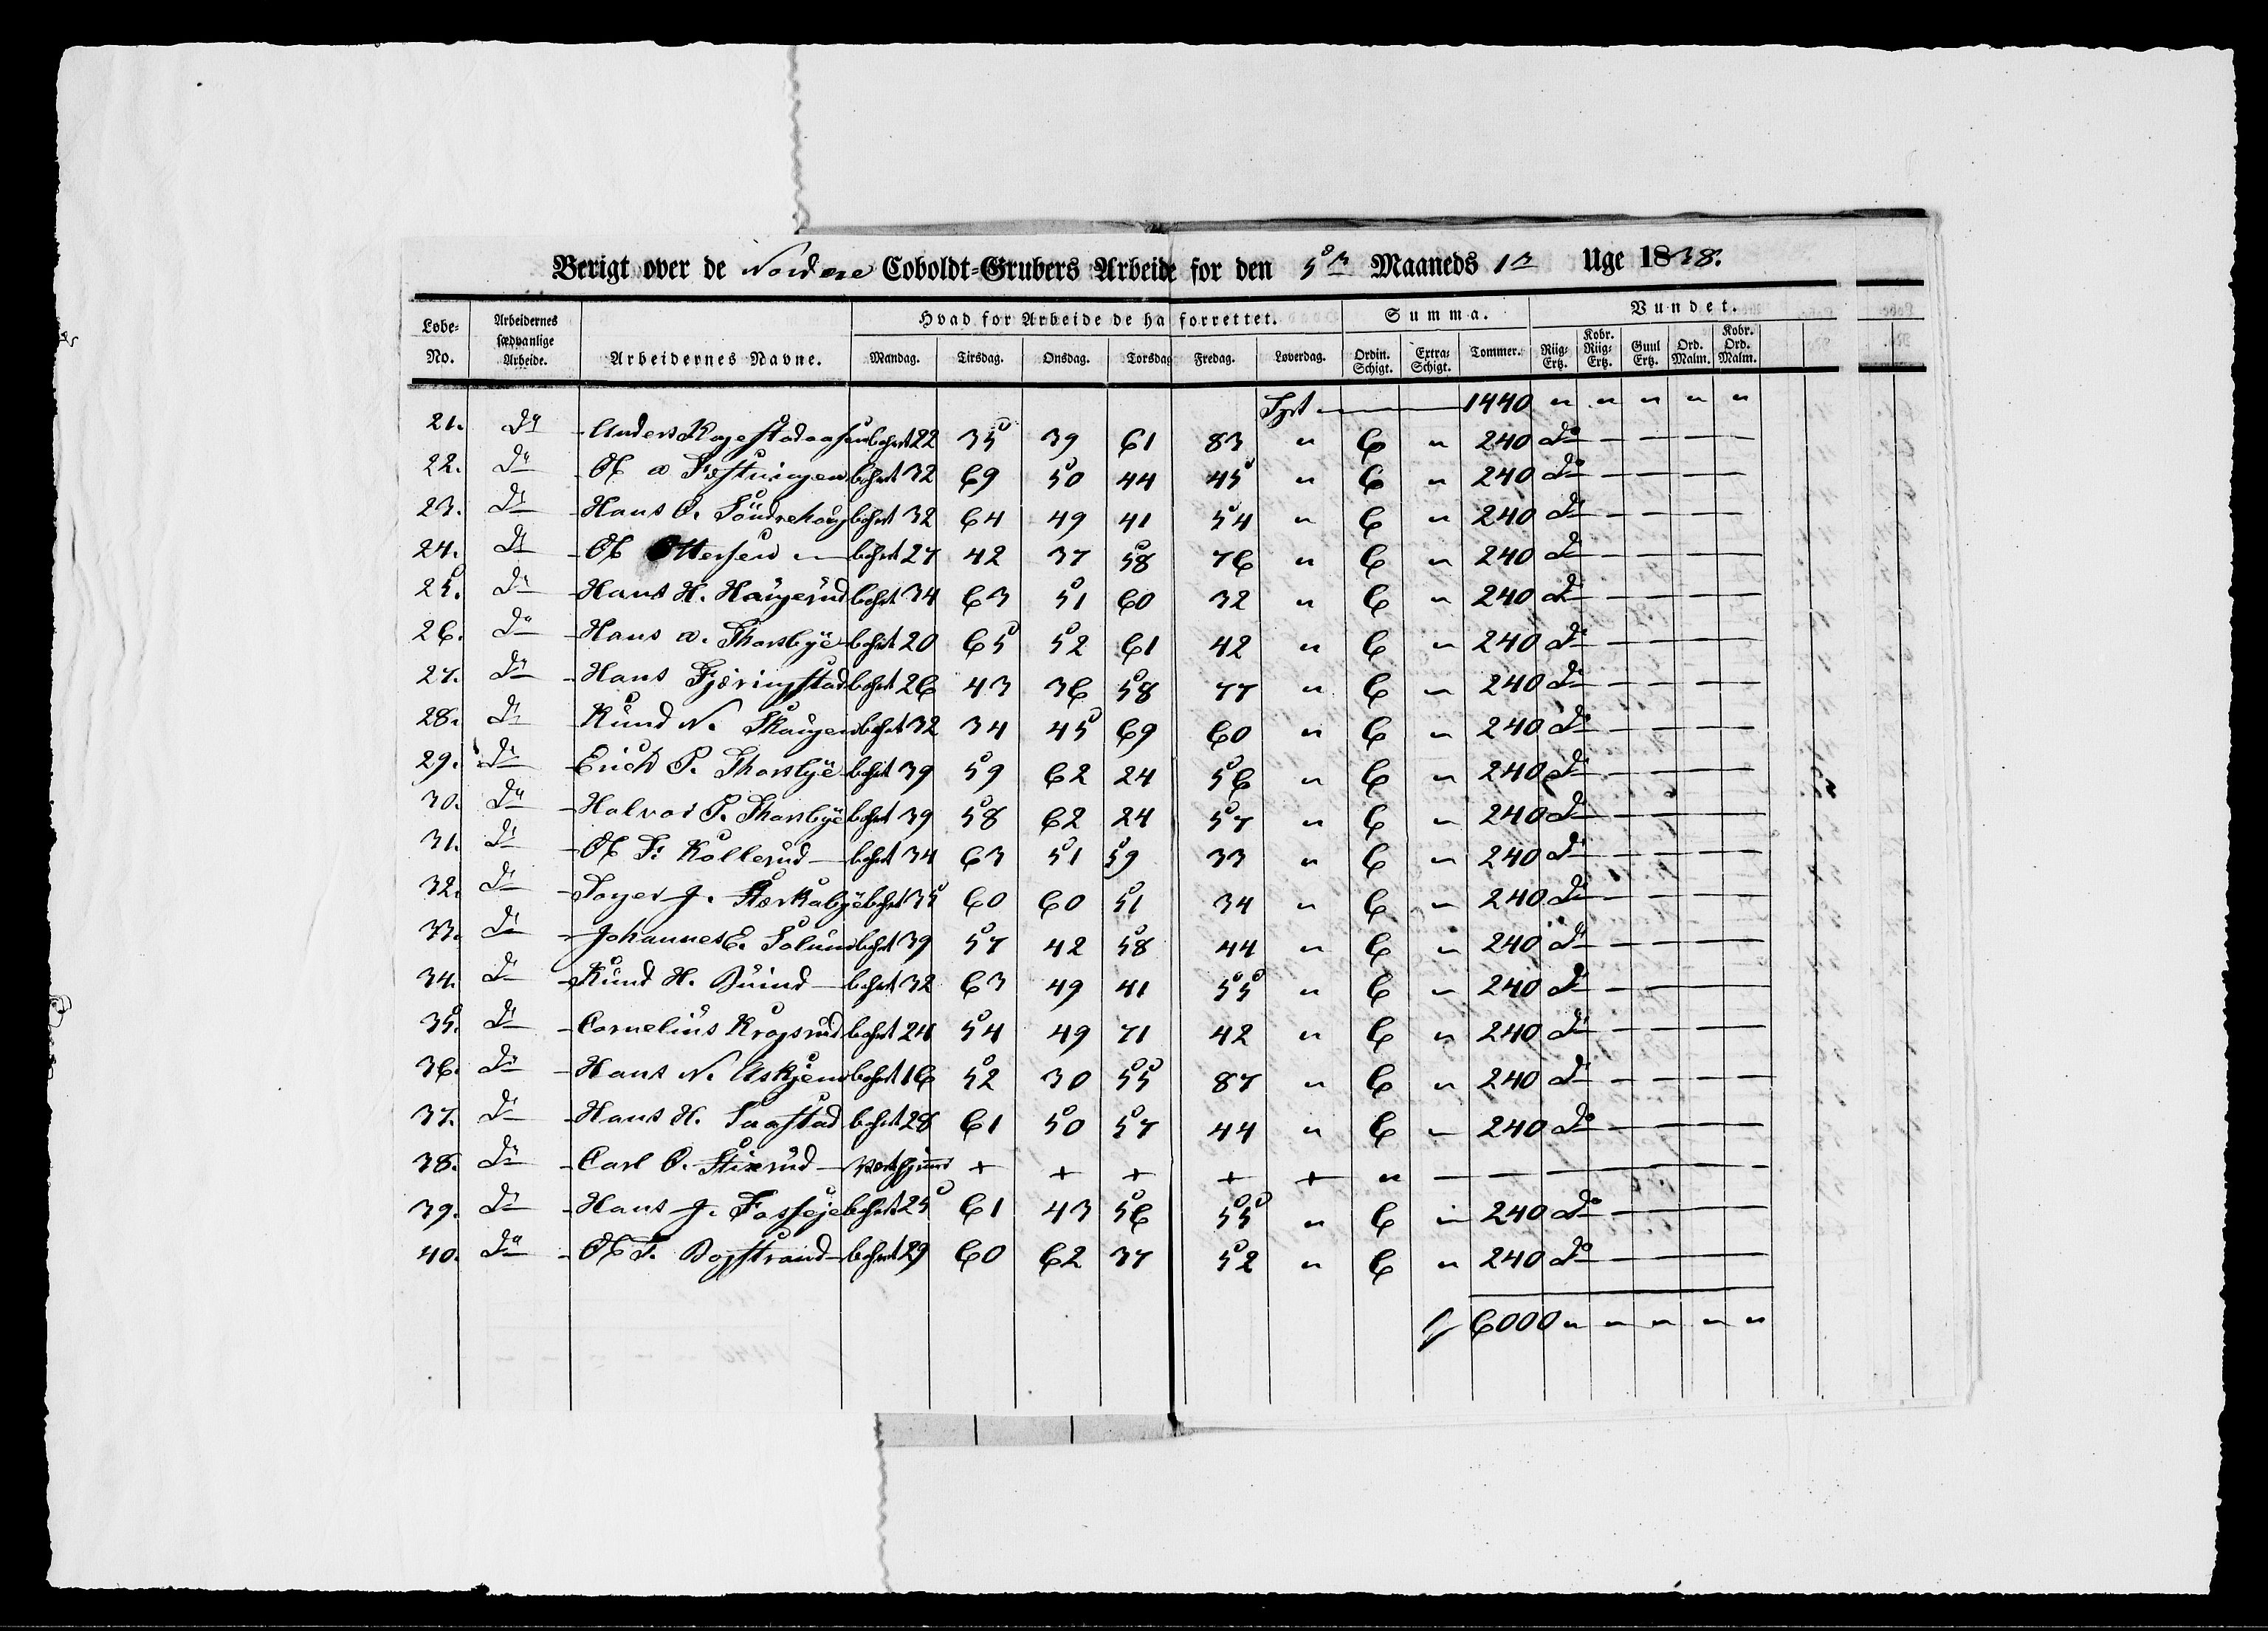 Berigt over de Nordre Coboldt-Grubers Arbeide for den 5te Maaneds 1te Uge 1838.
Løbe-No. Arbeidernes sædvanlige Arbeide. Arbeidernes Navne. Hvad for Arbeide de ha forrettet. Summa. Vundet.
Mandag. Tirsdag. Onsdag. Torsdag Fredag. Løverdag. Ordin. Schigt. Extra-Schigt. Tommer. Riig-Ertz. Kobr. Riig-Ertz. Guul Ertz. Ord. Malm. Kobr. Ord. Malm.
Tspt — 1440 " " " " "
21. Do - Anders bohret 22 35 39 61 83 " 6 " 240 Do — — — —
22. Do - Ol. A. Fæstningen bohret 32 69 50 44 45 " 6 " 240 Do — — — —
23. Do - Hans O. Söndrehoug bohret 32 64 49 41 54 " 6 " 240 Do — — — —
24. Do - Ol. Ottersen — bohret 27 42 37 58 76 " 6 " 240 Do — — — —
25. Do - Hans H. Haugerud bohret 34 63 51 60 32 " 6 " 240 Do — — — —
26. Do - Hans A. Thorsbye bohret 20 65 52 61 42 " 6 " 240 Do — — — —
27. Do - Hans Fjeringstad bohret 26 43 36 58 77 " 6 " 240 Do — — — —
28. Do - Knud N. Skaugen bohret 32 34 45 69 60 " 6 " 240 Do — — — —
29. Do - Erich P. Thorsbye bohret 39 59 62 24 56 " 6 " 240 Do — — — —
30. Do - Halvor P. Thorsbye bohret 39 58 62 24 57 " 6 " 240 Do — — — —
31. Do - Ol. F. Kollerud — bohret 34 63 51 59 33 " 6 " 240 Do — — — —
32. Do - J. bohret 35 60 60 51 34 " 6 " 240 Do — — — —
33. Do - Johannes E. Solum bohret 39 57 42 58 44 " 6 " 240 Do — — — —
34. Do - Knud H. Buind — bohret 32 63 49 41 55 " 6 " 240 Do — — — —
35. Do - Cornelius Krogsrud bohret 24 54 49 71 42 " 6 " 240 Do — — — —
36. Do - Hans N. Askjem bohret 16 52 30 55 87 " 6 " 240 Do — — — —
37. Do - Hans H. Saastad bohret 28 61 50 57 44 " 6 " 240 Do — — — —
38. Do - Carl O. Stixrud — + + + + + " — — — — — — —
39. Do - Hans J. Fosseje bohret 25 61 43 56 55 " 6 " 240 Do — — — —
40. Do - Ol. T. Bogstrand — bohret 29 60 62 37 52 " 6 " 240 Do — — — —
6000 " " " " "